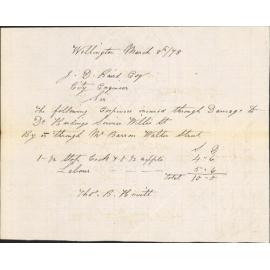 Wellington March 8th/78
J. D. Baird Esq
City Engineer
Sir
The following Expenses incured through Damage to
Dr Hardings Service Willis St
by through Mr Barron Walter Street
S D
1 - ½ Stop Cock & 1 ½ nipple 4 - 6
Labour 5 - 6
Total 10 - 0
Thos. B. Hewitt